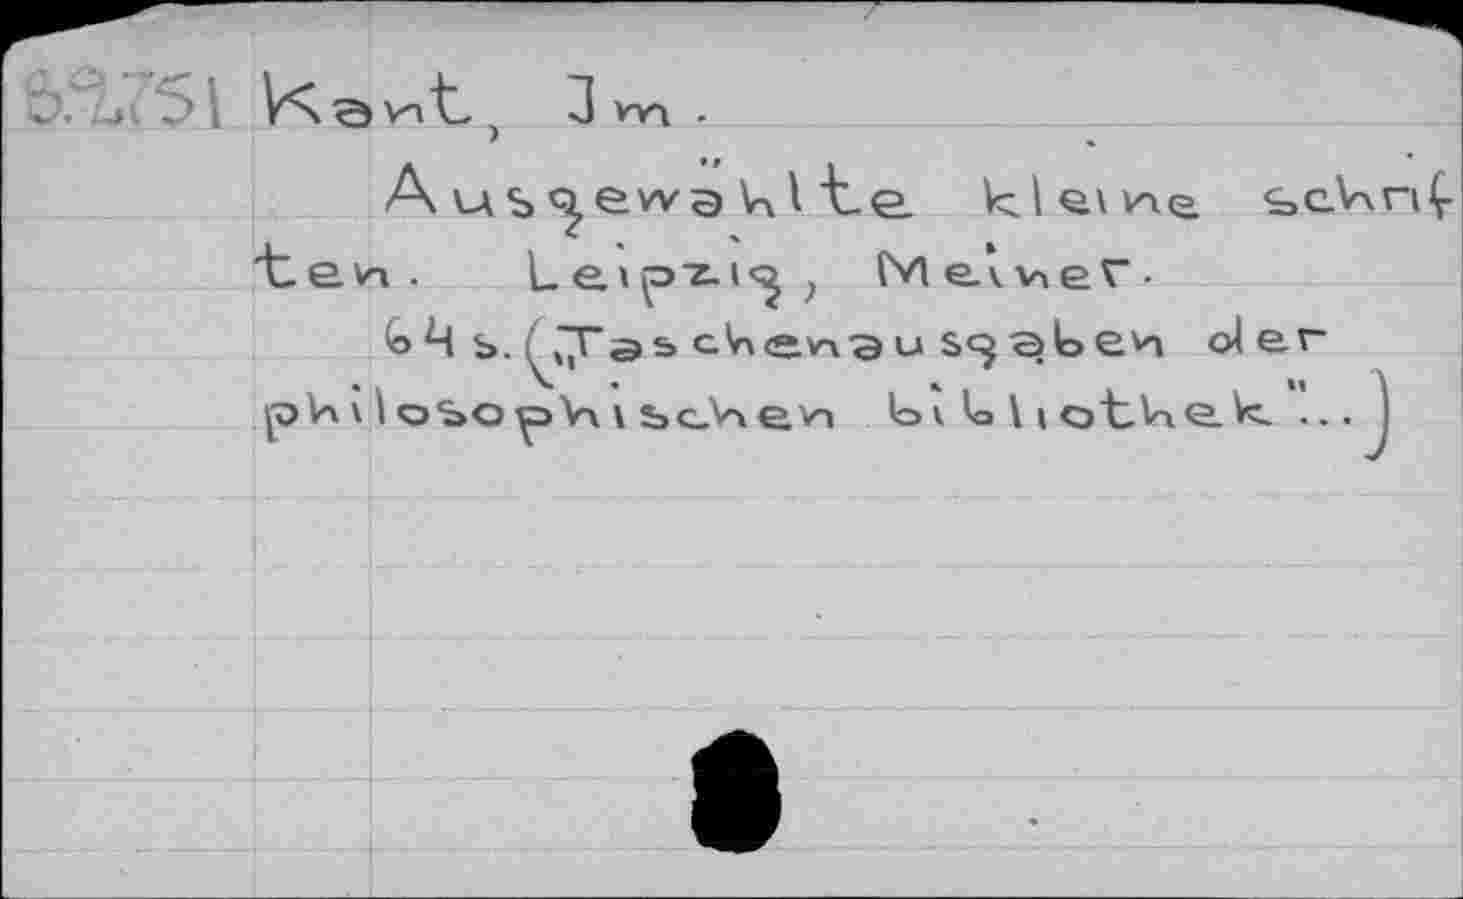 Б.92751 Kant, Im.
Ausgewählte kleine schrif
ten. Leipzig, Meiner.
64 s. („Taschenausgaben der
philosophischen bibliothek"...)